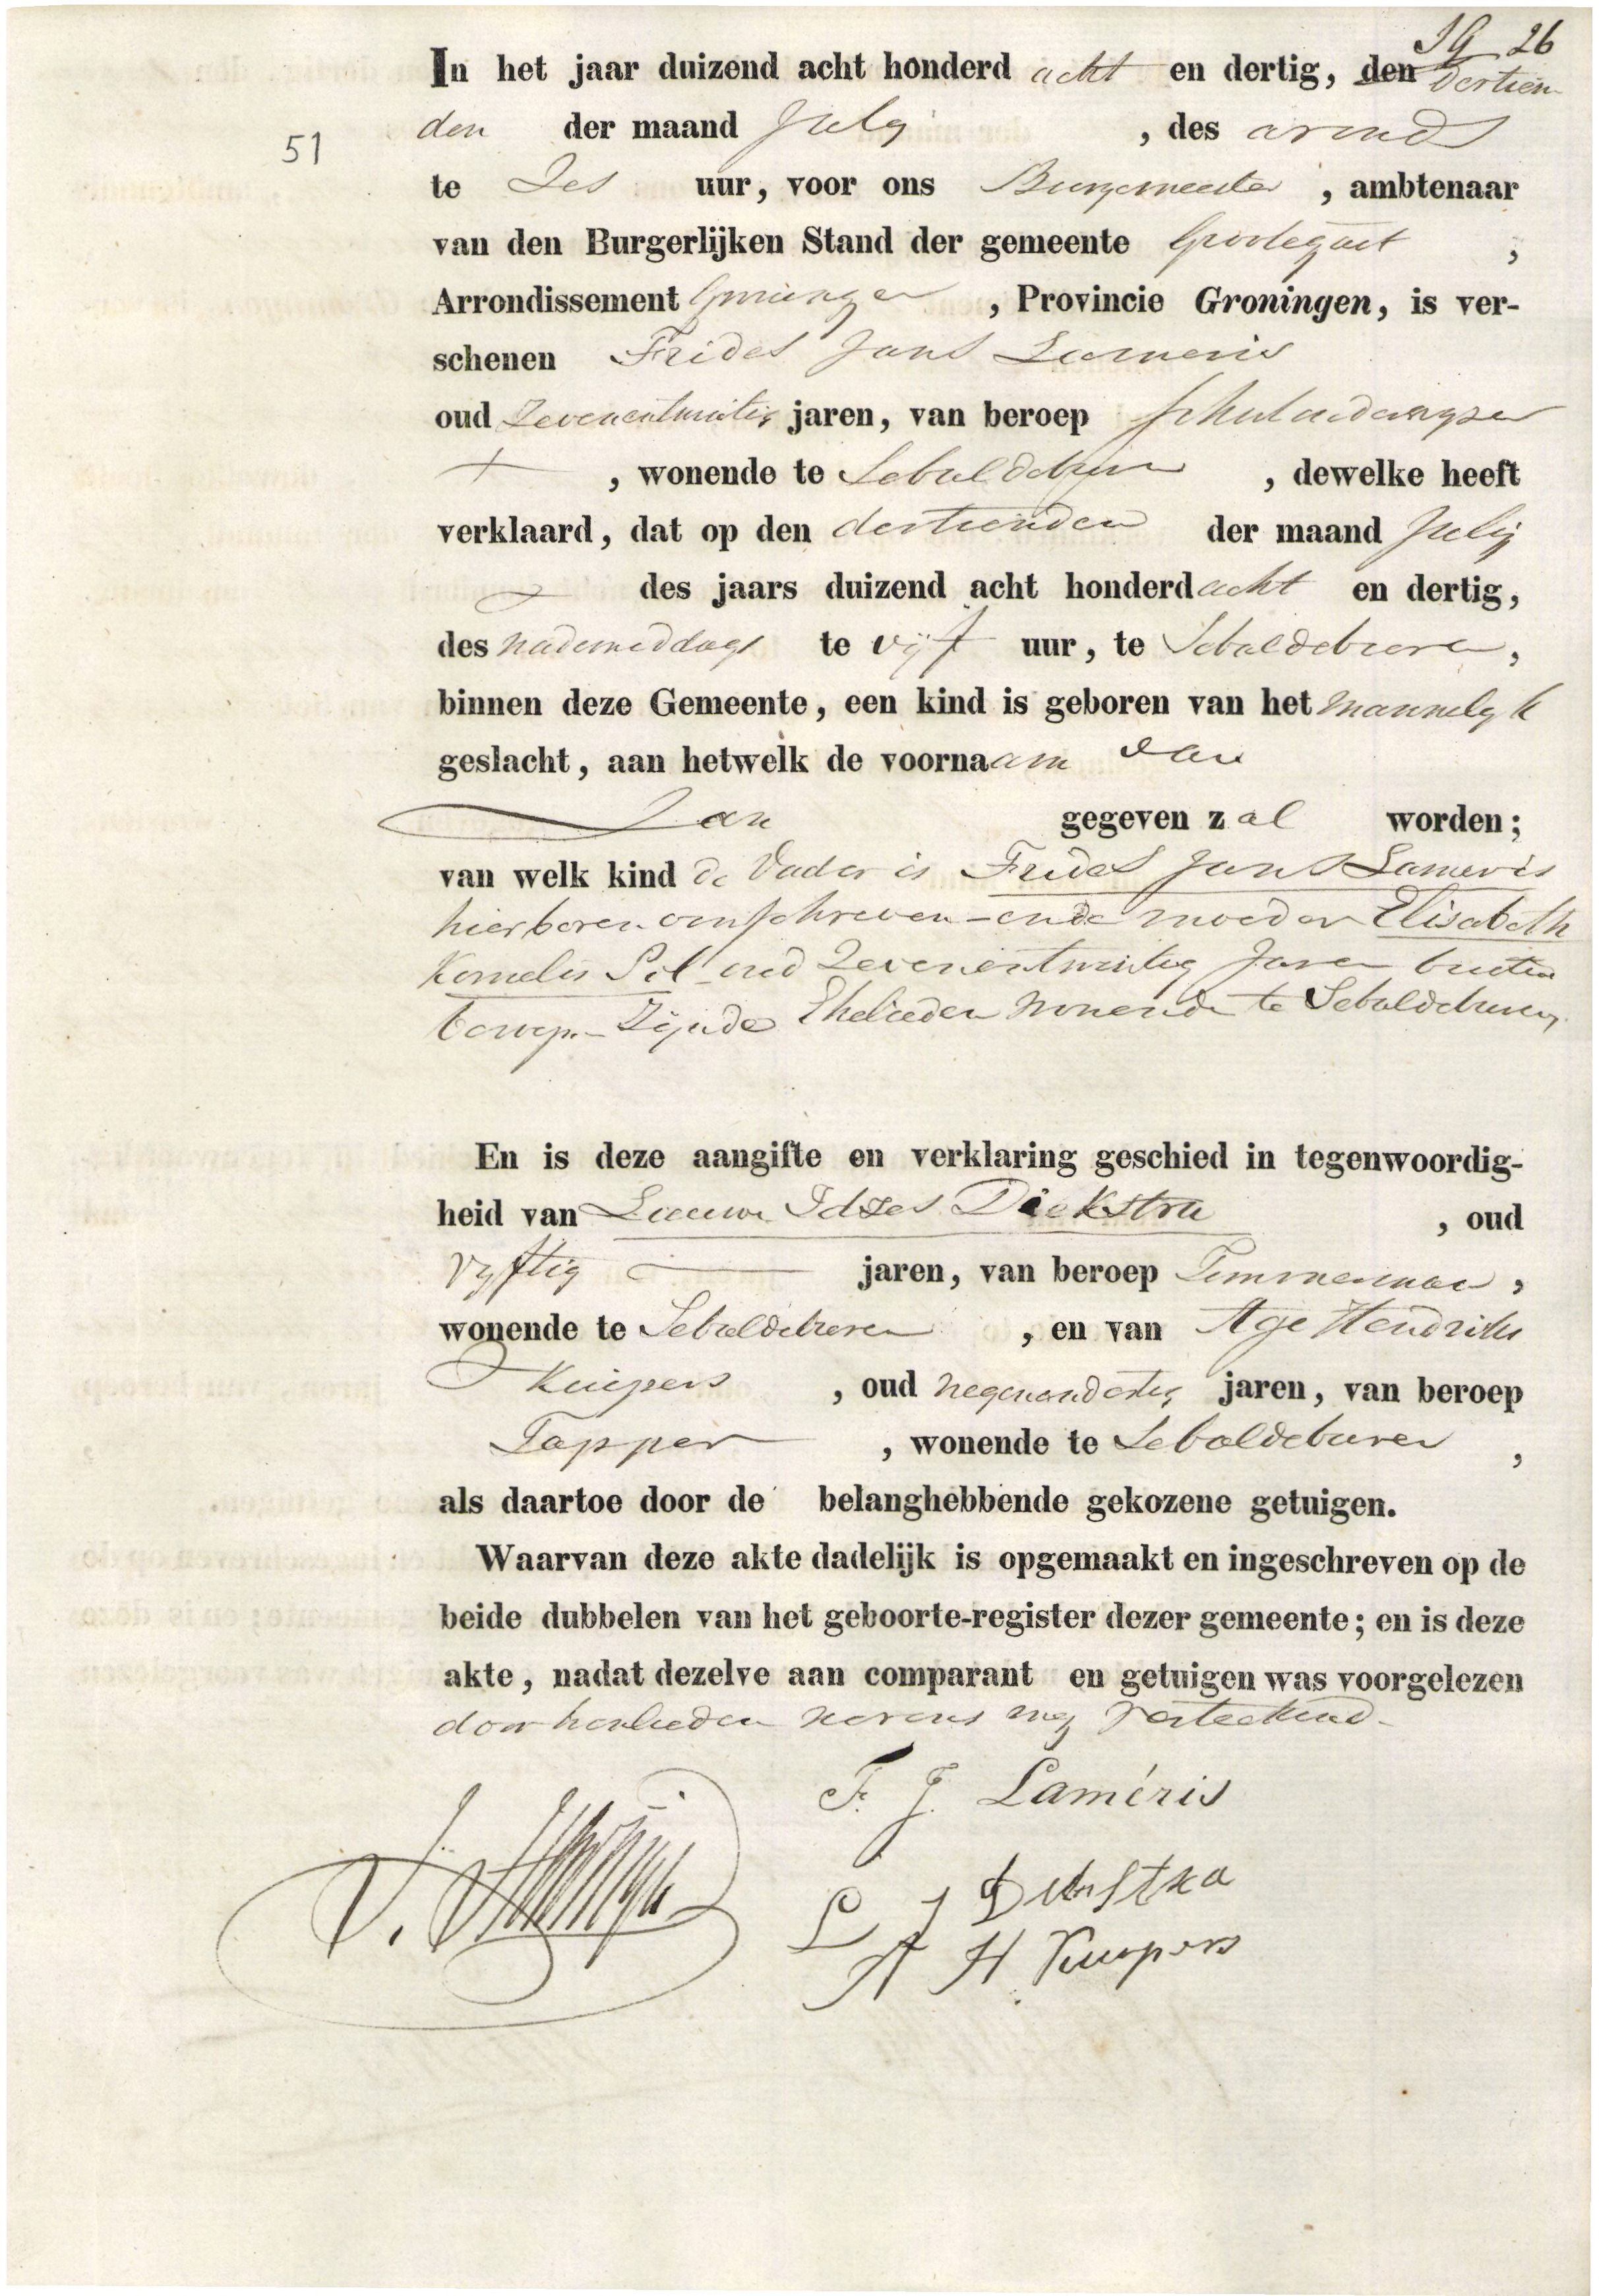 26
In het jaar duizend acht honderd acht en dertig, den dertien
51
den der maand July , des avonds
te Zes uur, voor ons Burgemeester , ambtenaar
van den Burgerlijken Stand der gemeente Grootegast ,
Arrondissement Groningen , Provincie Groningen, is ver-
schenen Frides Jans Lameris
oud Zevenentwintig jaren, van beroep
, wonende te Sebaldeburen , dewelke heeft
verklaard, dat op den dertienden der maand July
des jaars duizend acht honderd acht en dertig,
des nademiddags te vijf uur, te Sebaldeburen,
binnen deze Gemeente, een kind is geboren van het mannelyk
geslacht, aan hetwelk de voornaam van
Jan gegeven zal worden;
van welk kind de Vader is Frides Jans Lameris
hierboven omschreven en de moeder Elisabeth
Kornelis Pol oud Zevenentwintig Jaren buiten
beroep Zijnde Ehelieden wonende te Sebaldeburen
En is deze aangifte en verklaring geschied in tegenwoordig-
heid van Lieuwe Idzes Diekstra , oud
vyftig jaren, van beroep Timmerman ,
wonende te Sebaldeburen , en van Age Hendriks
Kuipers , oud negenendertig jaren, van beroep
Tapper , wonende te Sebaldeburen ,
als daartoe door de belanghebbende gekozene getuigen.
Waarvan deze akte dadelijk is opgemaakt en ingeschreven op de
beide dubbelen van het geboorte-register dezer gemeente; en is deze
akte, nadat dezelve aan comparant en getuigen was voorgelezen
door henlieden nevens my verteekend.
F. J. Laméris
L J Diekstra
A H Kuipers